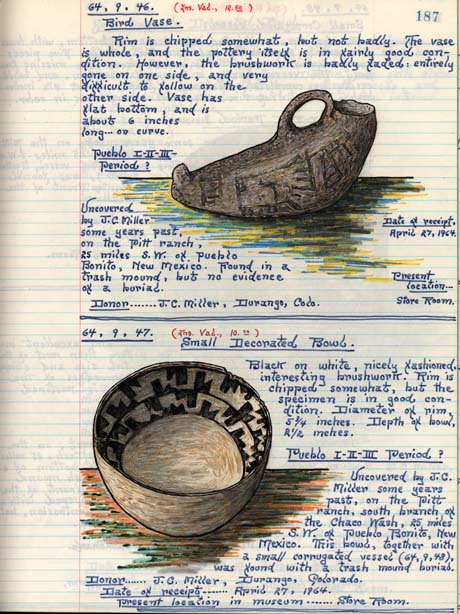 64, 9, 46. (Ins. Val., 10.00) 187
Bird Vase.
Rim is chipped somewhat, but not badly. The vase
is whole, and the pottery itself is in fairly good con-
dition. However, the brushwork is badly faded: entirely
gone on one side, and very
difficult to follow on the
other side. Vase has
flat bottom, and is
about 6 inches
long... on curve.
Pueblo I-II-III-
Period ?
Uncovered
by J.C. Miller
some years past,
on the Pitt ranch,
25 miles S.W. of Pueblo
Bonito, New Mexico. Found in a
trash mound, but no evidence
of a burial.
Donor....... J.C. Miller, Durango, Colo.
Date of receipt,
April 27, 1964.
Present
location...
Store Room.
64, 9, 47. (Ins. Val., 10.00)
Small Decorated Bowl.
Black on white, nicely fashioned,
interesting brushwork. Rim is
chipped somewhat, but the
specimen is in good con-
dition. Diameter of rim,
5 3/4 inches. Depth of bowl,
2 1/2 inches.
Pueblo I-II-III Period ?
Uncovered by J.C.
Miller some years
past, on the Pitt
ranch, south branch of
the Chaco Wash, 25 miles
S.W. of Pueblo Bonito, New
Mexico. This bowl, together with
a small corrugated vessel (64, 9, 49),
was found with a trash mound burial.
Donor...... J.C. Miller, Durango, Colorado.
Date of receipt------ April 27, 1964.
Present location in museum ----- Store Room.